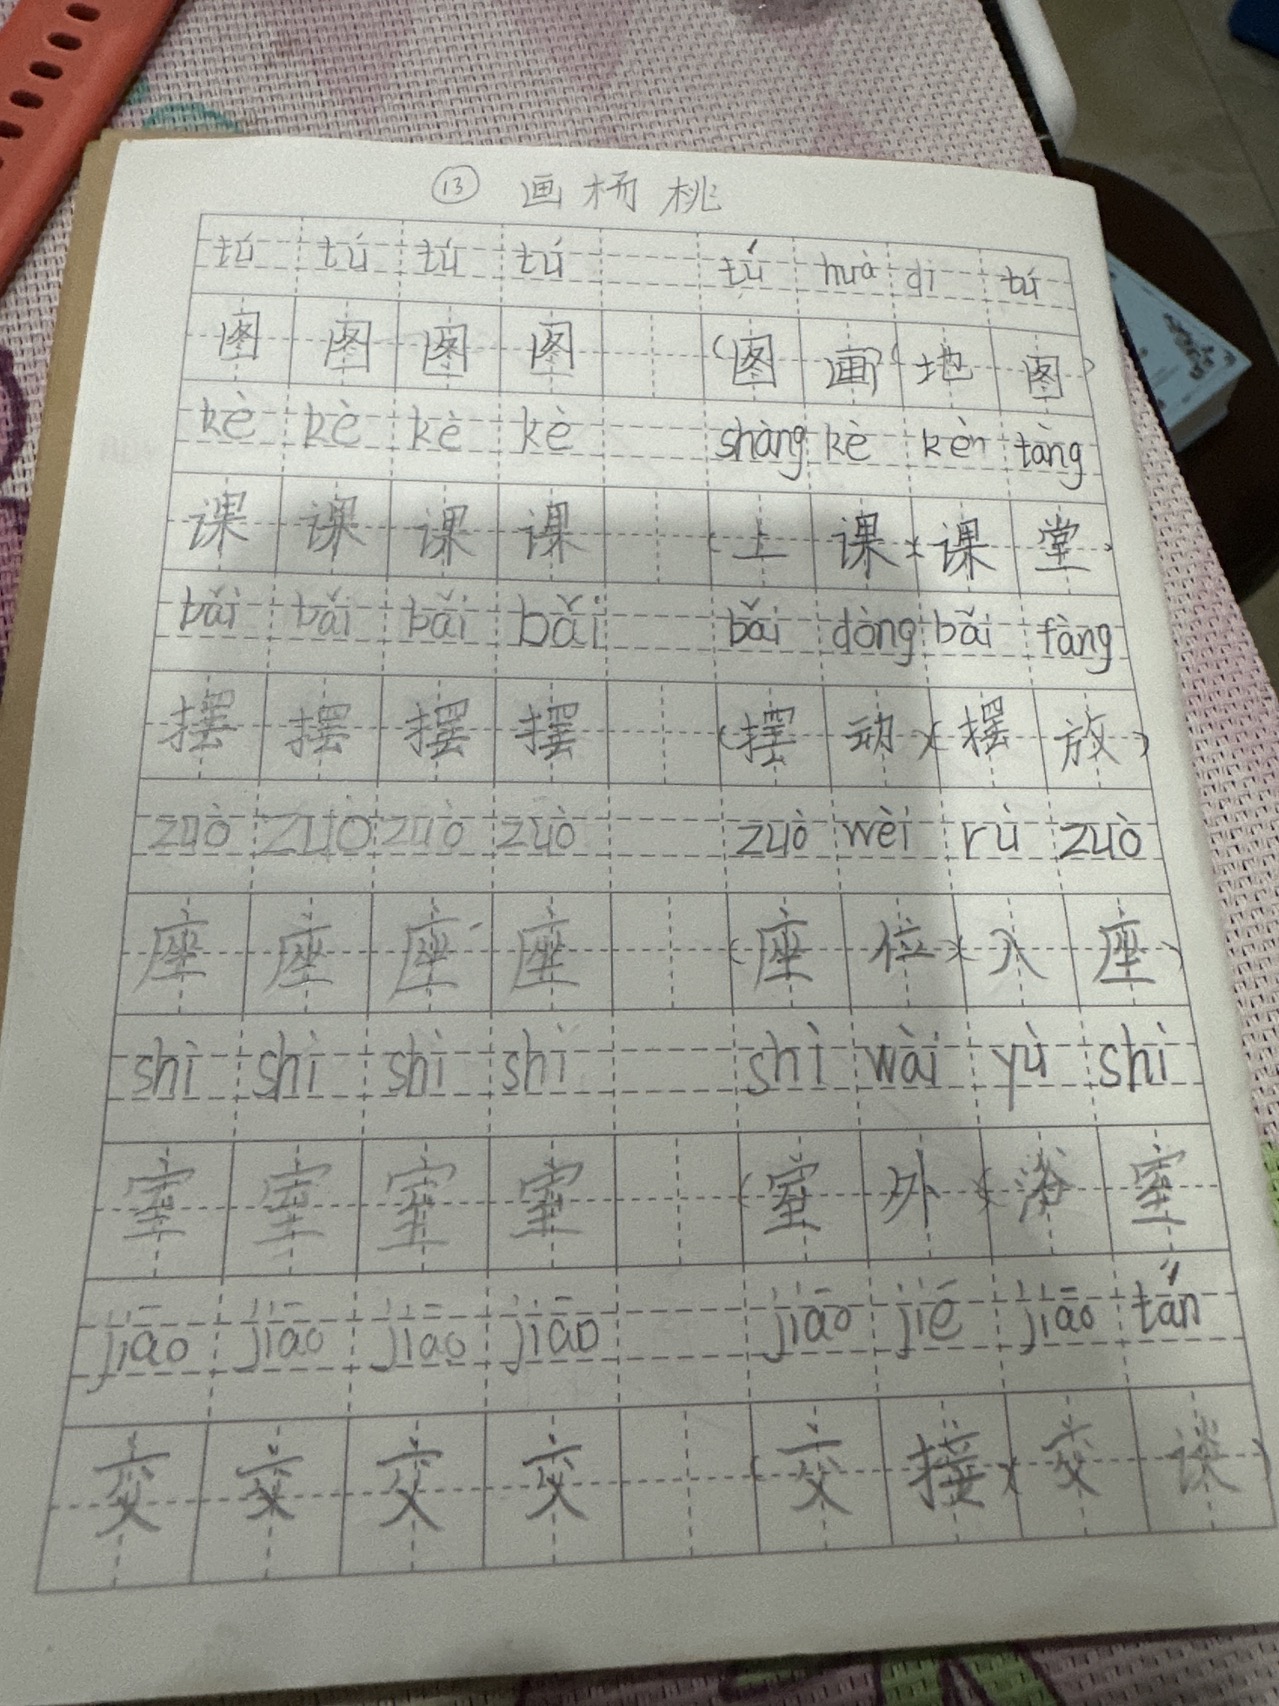 ⑬ 画杨桃
tú tú tú tú tú huà dì tú
图 图 图 图 (图 画)(地 图)
kè kè kè kè shàng kè kèn tàng
课 课 课 课 (上 课)(课 堂)
bǎi bǎi bǎi bǎi bǎi dòng bǎi fàng
摆 摆 摆 摆 (摆 动)(摆 放)
zuò zuò zuò zuò zuò wèi rù zuò
座 座 座 座 (座 位)(入 座)
shì shì shì shì shì wài yù shì
室 室 室 室 (室 外)(浴 室)
jiāo jiāo jiāo jiāo jiāo jiē jiāo tán
交 交 交 交 (交 接)(交 谈)